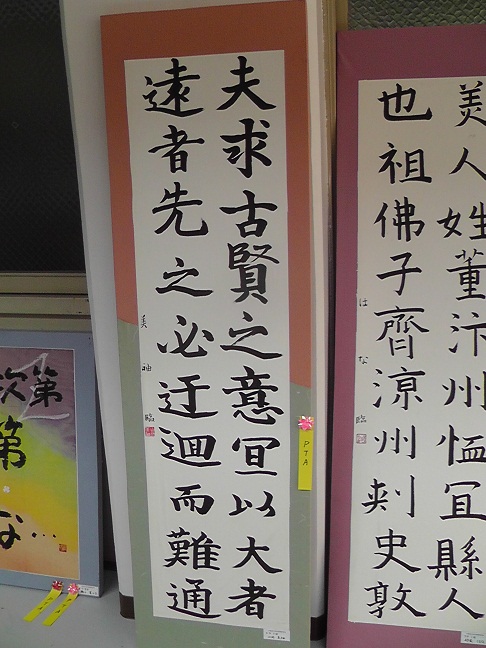 美人姓董汴州恤冝縣人
也祖佛子齊涼州刾史敦
はな臨
夫求古賢之意冝以大者
遠者先之必迂迴而難通
PTA
次第
第
な…